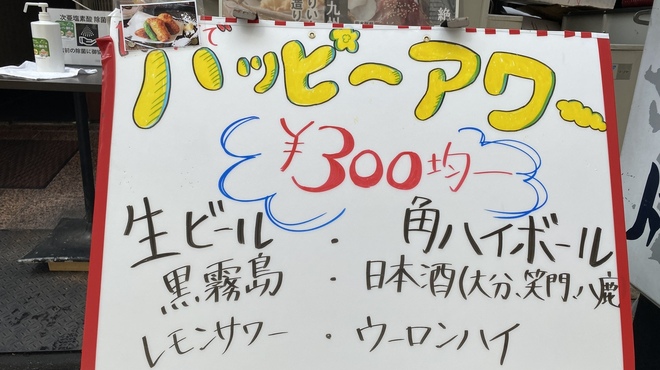 次亜塩素酸 除菌
で
ハッピーアワー
¥300均一
生ビール ・ 角ハイボール
黒霧島 ・ 日本酒(大分、笑門、八鹿
レモンサワー ・ ウーロンハイ